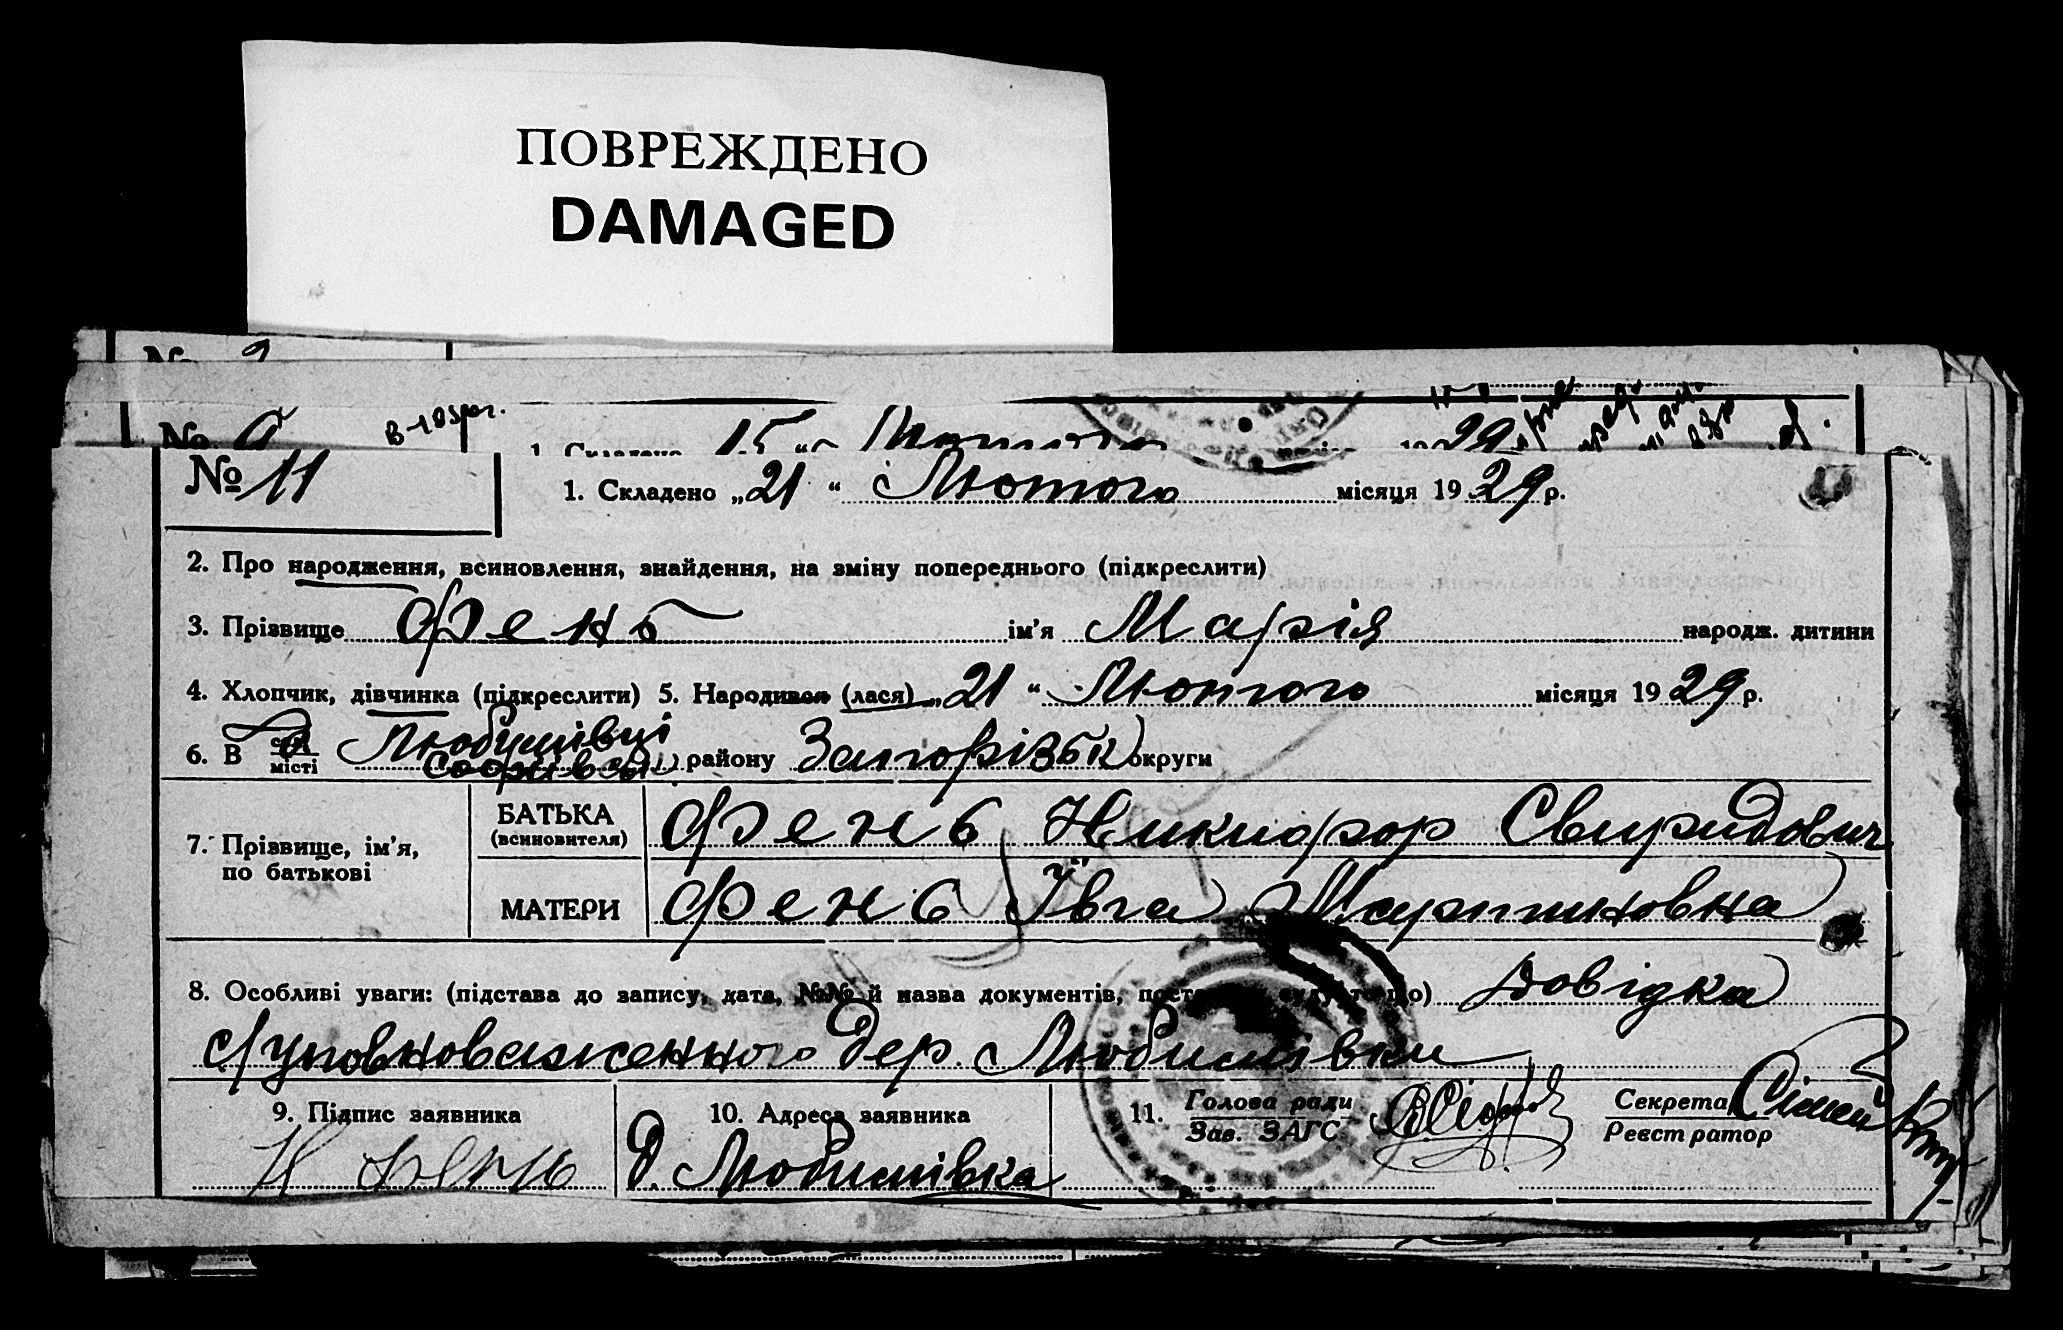 ПОВРЕЖДЕНО
DAMAGED
№ 9
№ 15 Лютого 29
№ 11
1. Складено „21“ Лютого місяця 1929 р.
2. Про народження, всиновлення, знайдення, на зміну попереднього (підкреслити)
3. Прізвище Фень ім’я Марія народж. дитини
4. Хлопчик, дівчинка (підкреслити) 5. Народився (лася) „21“ Лютого місяця 1929 р.
6. В селі місті Любимівці Софіевськ району Запорізьк округи
7. Прізвище, ім’я, по батькові
БАТЬКА (всиновителя) Фень Никифор Свиридович
МАТЕРИ Фень Ївга Мартиновна
8. Особливі уваги: (підстава до запису, дата, №№ й назва документів, Довідка
Уповноваженного Дер. Любимівки
9. Підпис заявника 10. Адреса заявника 11. Голова ради Секретар
Зав. ЗАГС Реєстратор
Н Фень Д. Любимівка